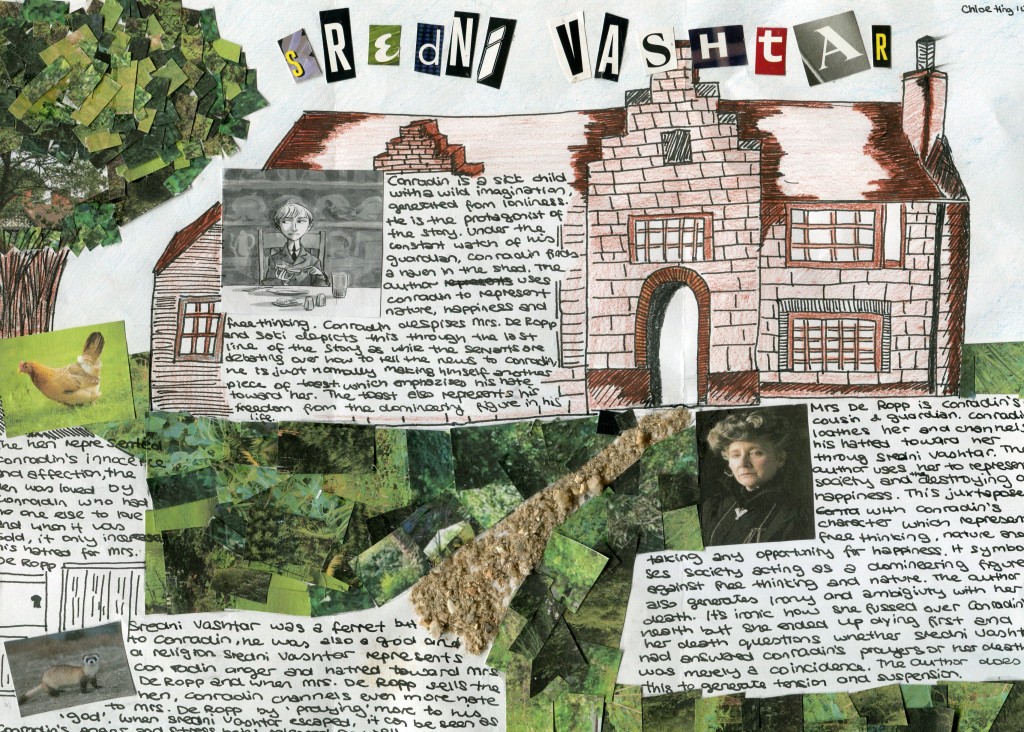 Chloe King
SREDNI VASHTAR
Conradin is a sick child
with a wild imagination,
generated from lonliness.
He is the protagonist of
the story. Under the
constant watch of his
guardian, Conradin finds
a haven in the shed. The
author represents uses
conradin to represent
nature, happiness and
free thinking. Conradin despises Mrs. De Ropp
and Saki depicts this through the last
line of the story as while the servants are
debating over how to tell the news to conradin,
he is just normally making himself another
piece of toast which emphazises his hate
toward her. The toast also represents his
freedom from the domineering figure in his
life.
The hen represented
Conradin's innocence
and affection, the
hen was loved by
Conradin who had
no one else to love
and when it was
sold, it only increased
his hatred for Mrs.
De Ropp
Mrs De Ropp is Conradin's
cousin & guardian. Conradin
loathes her and channels
his hatred toward her
throug Sredni Vashtar. The
author uses her to represent
society and the destroying of
happiness. This juxtaposes
with Conradin's
character which represents
free thinking, nature and
taking any opportunity for happiness. It symboli
ses society acting as a domineering figure
against free thinking and nature. The author
also generates irony and ambiguity with her
death. It's ironic how she fussed over Conradin's
health but she ended up dying first and
her death questions whether Sredni Vashtar
had answered Conradin's prayers or her death
was merely a coincidence. The author does
this to generate tension and suspension.
Sredni Vashtar was a ferret but
to Conradin, he was also a god and
a religion. Sredni Vashtar represents
Conradin anger and hatred toward Mrs
De Ropp and when Mrs. De Ropp sells the
hen, Conradin channels even more hate
to Mrs. De Ropp by 'praying' more to his
'god'. When Sredni Vashtar escaped, it can be seen as
Conradin's anger and stress being released